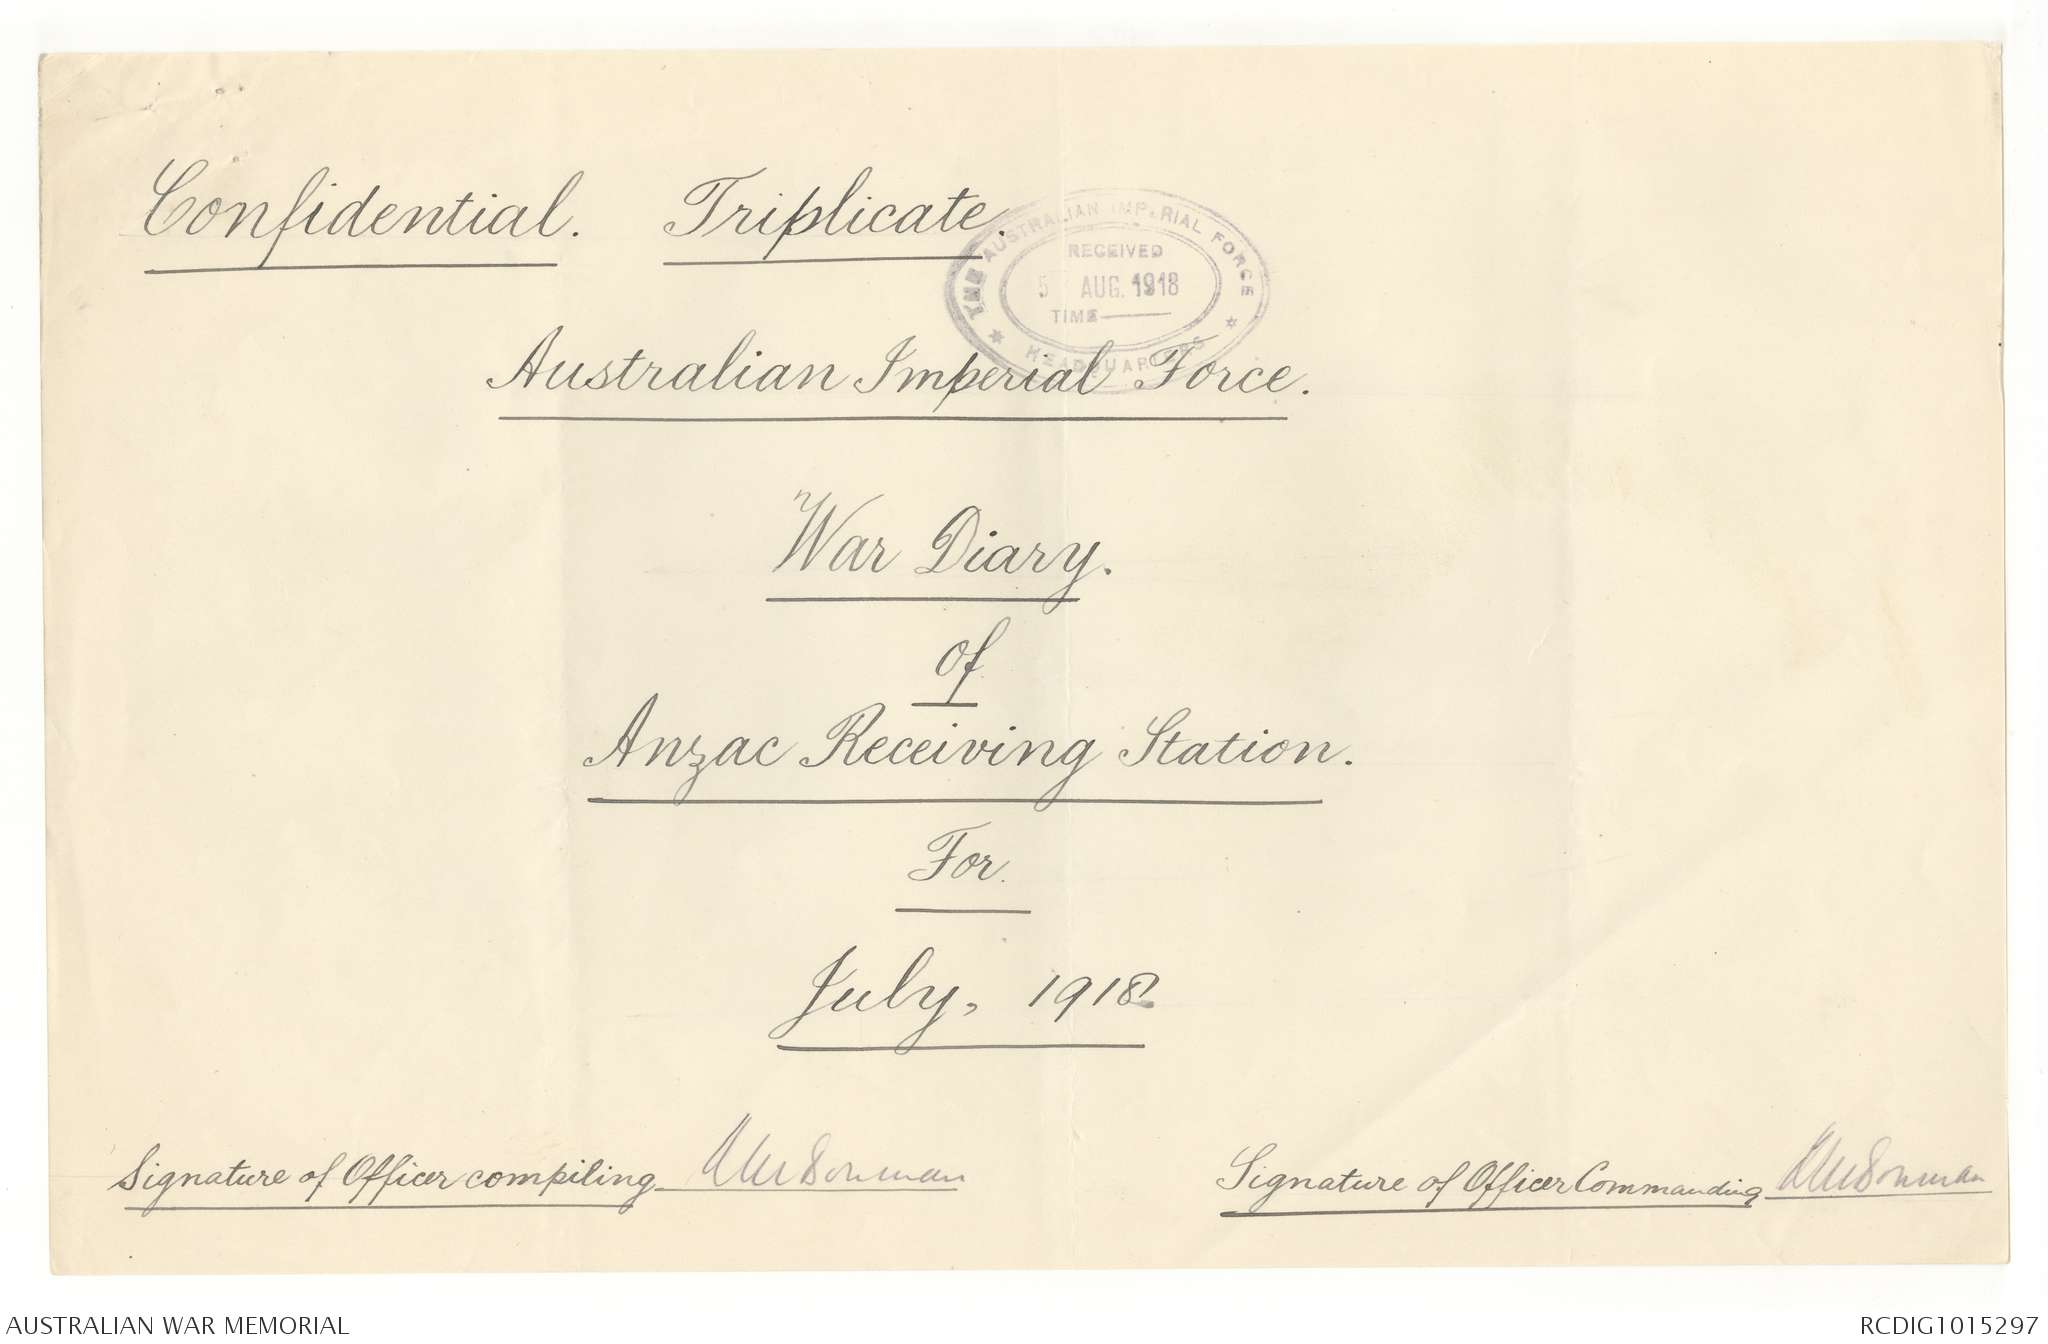 Confidential. Triplicate.
THE AUSTRALIAN IMPERIAL FORCE
RECEIVED
5 AUG. 1918
TIME
HEADQUARTERS
Australian Imperial Force.
War Diary.
of
Anzac Receiving Station.
For.
July, 1918
Signature of Officer compiling Bowman
Signature of Officer Commanding Bowman
AUSTRALIAN WAR MEMORIAL
RCDIG1015297